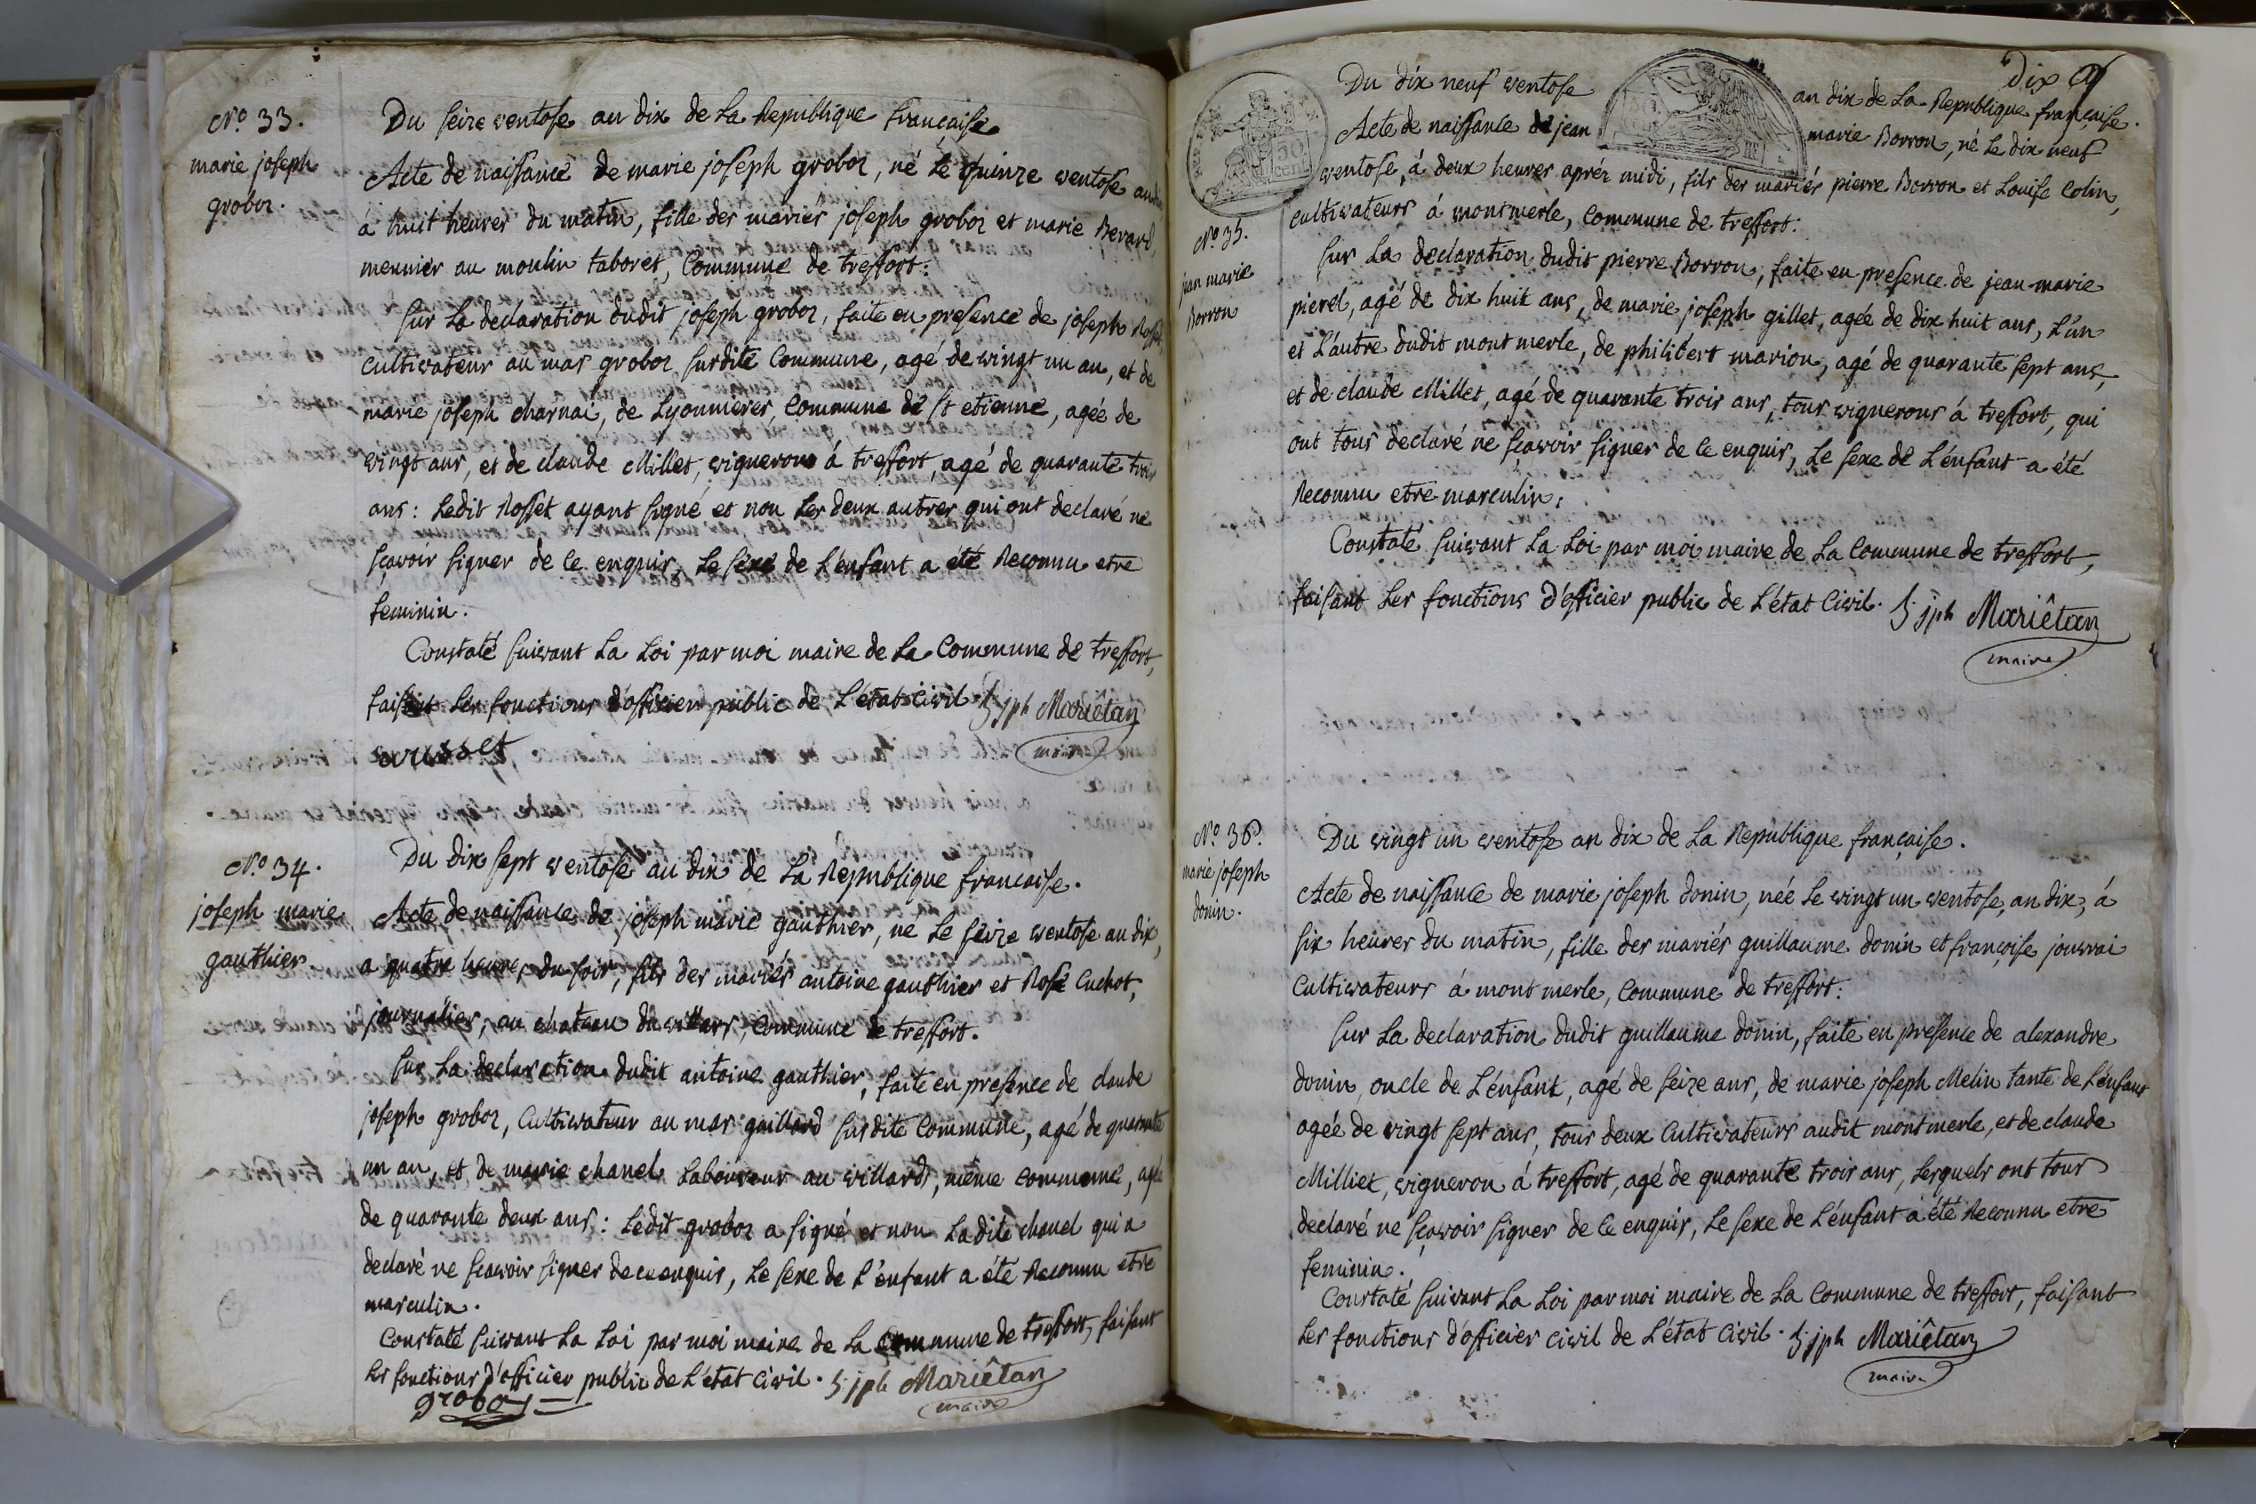 N.o 33.
marie joseph
groboz.
Du seize ventose an dix de la Republique francaise
Acte de naissance de marie joseph groboz, né le quinze ventose an dix
à huit heures du matin, fille des mariés joseph groboz et marie Berard,
meunier au moulin taboret, Commune de treffort:
sur la déclaration dudit joseph groboz, faite en presence de joseph Rosset,
cultivateur au mas groboz susdite Commune, agé de vingt un an, et de
marie joseph charnai, de Lyonnieres, Commune de St etienne, agée de
vingt ans, et de claude Millet, vigneron à treffort, agé de quarante trois
ans: Ledit Rosset ayant signé et non les deux autres qui ont declaré ne
sçavoir signer de ce enquis, Le sexe de L'enfant a eté Reconnu etre
feminin.
Constaté suivant La Loi par moi maire de la Commune de treffort,
faisant les fonctions d'officier public de L'état civil. jph Mariêtan
maire
N.o 34.
joseph marie
gauthier.
Du dix sept ventose an dix de La Republique francaise.
Acte de naissance de joseph marie gauthier, ne le seize ventose an dix,
a quatre heures du soir, fils des mariés antoine gauthier et Rose Cuchot,
journalier, au chateau du villars, Commune de treffort.
sur La declaration dudit antoine gauthier, faite en presence de claude
joseph groboz, Cultivateur au mas guillard susdite Commune, agé de quarante
un an, et de marie chanel Laboureur au villards, même commune, agée
de quarante deux ans: Ledit groboz a signé et non La dite chanel qui a
declaré ne scavoir signer de ce enquis, Le sexe de L'enfant a été Reconnu etre
masculin.
Constaté suivant La Loi par moi maire de La Commune de treffort, faisant
les fonctions d'officier public de L'état civil. jph Mariêtan
groboz
maire
dix
Du dix neuf ventose an dix de La Republique française.
Acte de naissance de jean marie Borron, né Le dix neuf
ventose, à deux heures aprés midi, fils des mariés pierre Borron et Louise Colin,
cultivateurs á montmerle, Commune de treffort:
N.o 35.
jean marie
Borron
sur La declaration dudit pierre Borron, faite en presence de jean-marie
pierel, agé de dix huit ans, de marie joseph gillet, agée de dix huit ans, L'un
et L'autre dudit mont merle, de philibert marion, agé de quarante sept ans,
et de claude Millet, agé de quarante trois ans, tous vignerons á treffort, qui
ont tous declaré ne sçavoir signer de ce enquis, Le sexe de L'enfant a été
Reconnu etre masculin:
Constaté suivant La Loi par moi maire de La Commune de treffort,
faisant Les fonctions d'officier public de L'état Civil. jph Mariêtan
maire
N.o 36.
marie joseph
donin.
Du vingt un ventose an dix de La Republique française.
Acte de naissance de marie joseph donin, née Le vingt un ventose, an dix, á
six heures du matin, fille des mariés guillaume donin et françoise jouvrai
Cultivateurs á mont merle, Commune de treffort:
sur La declaration dudit guillaume donin, faite en presence de alexandre
donin, oncle de L'énfant, agé de seize ans, de marie joseph Melin tante de L'enfant
agée de vingt sept ans, tous deux Cultivateurs audit montmerle, et de claude
Milliet, vigneron á treffort, agé de quarante trois ans, Lesquels ont tous
declaré ne sçavoir signer de ce enquis, Le sexe de L'énfant a été Reconnu etre
feminin.
Constaté suivant La Loi par moi maire de La Commune de treffort, faisant
Les fonctions d'officier civil de L'état Civil. jph Mariêtan
maire